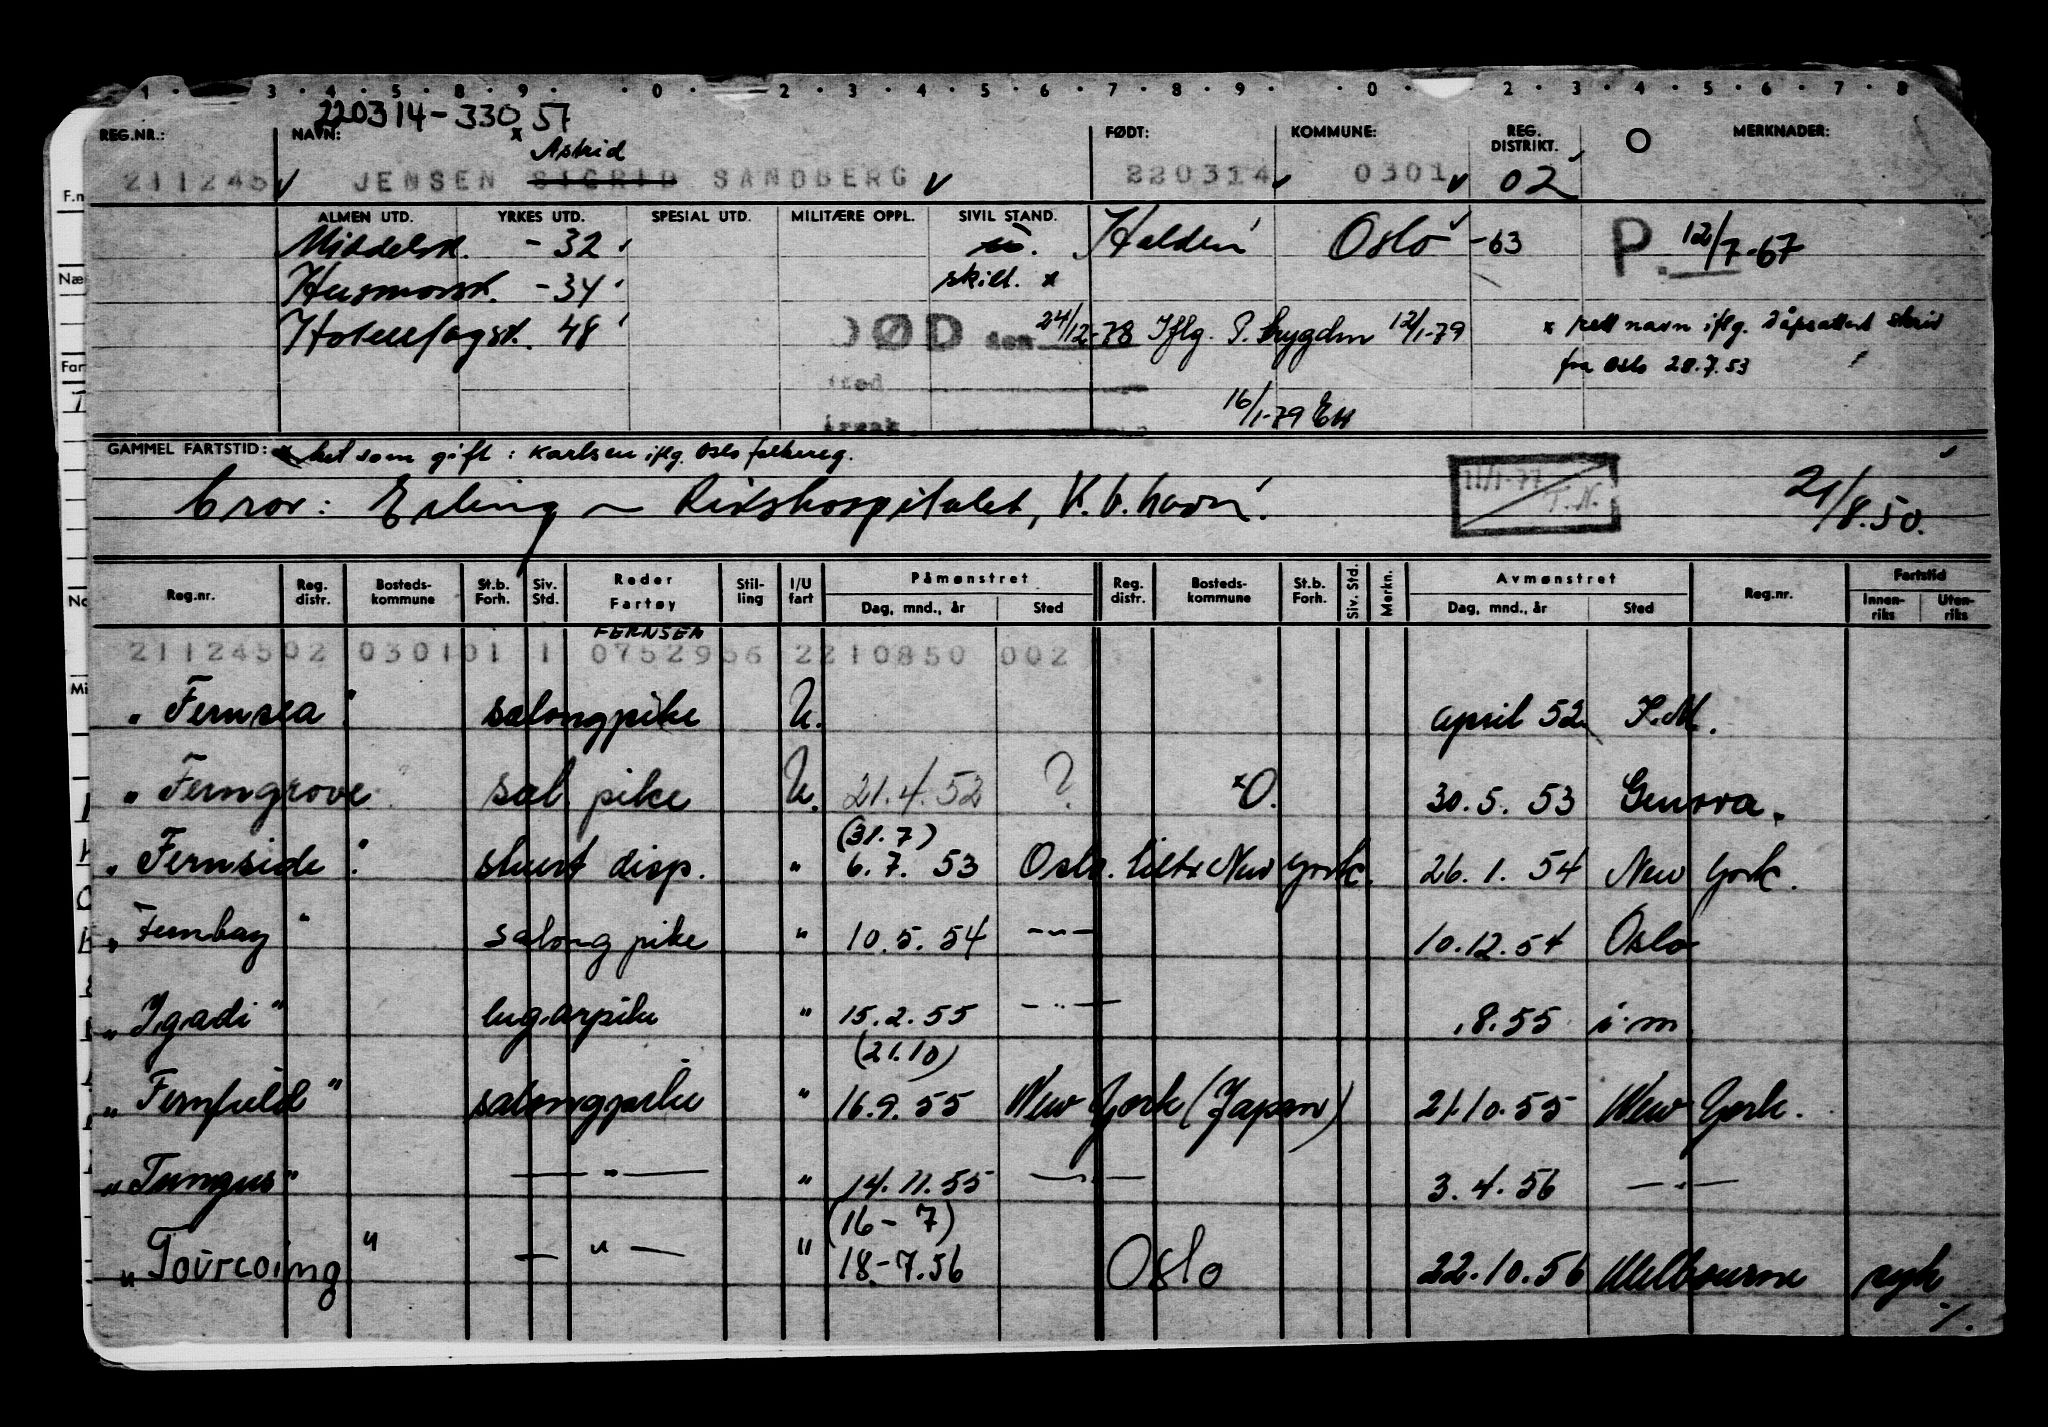 220314-330 57
REG.NR.: NAVN: FØDT: KOMMUNE: REG. DISTRIKT. O MERKNADER:
x Astrid
211245 v JENSEN SIGRID SANDBERG v 220314 v 0301 v 02
ALMEN UTD. YRKES UTD. SPESIAL UTD. MILITÆRE OPPL. SIVIL STAND.
Middelsk. -32 Halden Oslo -63 P. 12/7-67
Husmorsk. -34 skilt. x
Hotellfagsk. 48 DØD den 24/12-78 Iflg. P. trygden 12/1-79 x rett navn iflg. dåpsattest skriv
fra Oslo 28.7.53
sted
årsak 16/1-79 EH
GAMMEL FARTSTID: x het som gift: Karlsen iflg. Oslo folkereg.
bror: Erling ~ Rikshospitalet, K.b.havn. 11/1-77 T.N. 21/8.50.
Reg.nr. Reg. distr. Bosteds-kommune St.b. Forh. Siv. Std. Reder Fartøy Stilling I/U fart Påmønstret Reg. distr. Bosteds-kommune St.b. Forh. Siv. Std. Merkn. Avmønstret Reg.nr. Fartstid
Dag, mnd., år Sted Dag, mnd., år Sted Innen-riks Uten-riks
FERNSEA
21124502 030101 1 0752956 2210850 002
"Fernsea" salongpike U. april 52 I.M.
"Ferngrove" sal. pike U. 21.4.52 ? xO. 30.5.53 Genova.
(31.7)
"Fernside" stuert disp. " 6.7.53 Oslo. tiltr New York. 26.1.54 New York.
"Fernbay" salongpike " 10.5.54 -"- 10.12.54 Oslo
"Igadi" lugarpike " 15.2.55 -"- .8.55 i.m
(21.10)
"Fernfield" salongpike " 16.9.55 New York (Japan) 21.10.55 New York.
"Tungus" -"- " 14.11.55 -"- 3.4.56 -"-
(16-7)
"Tourcoing" -"- " 18.-7.56 Oslo 22.10.56 Melbourne syk
./.